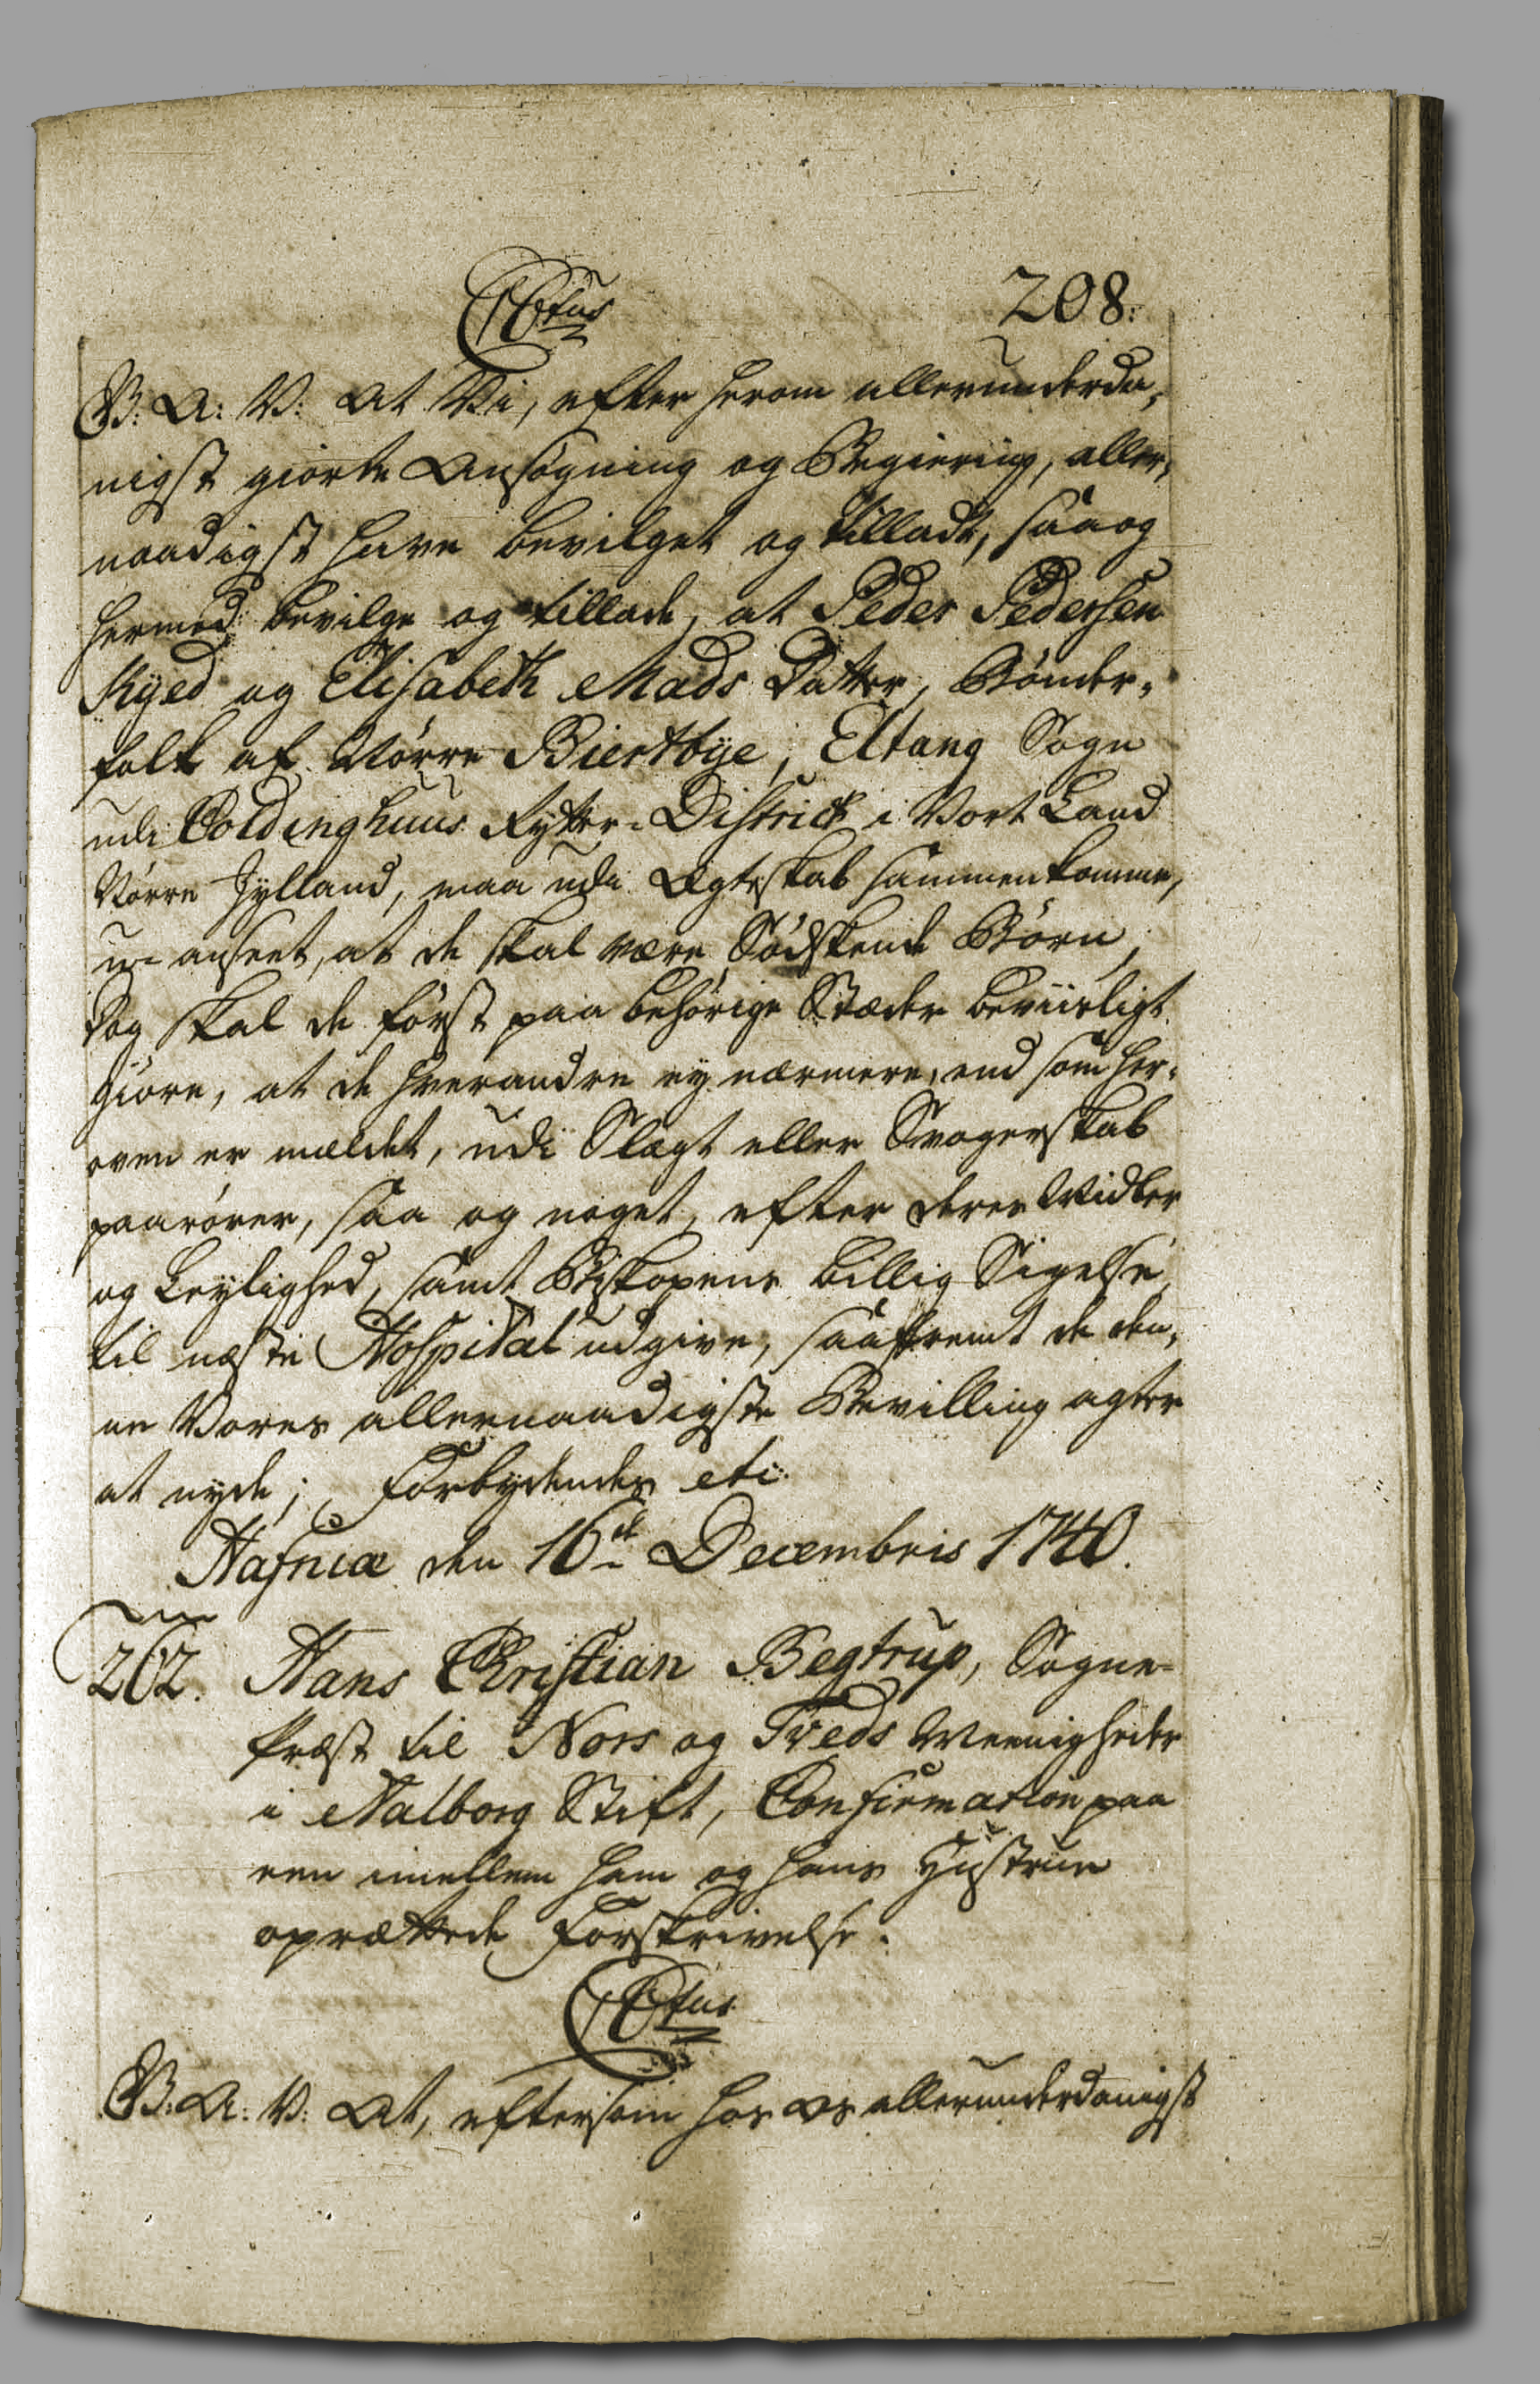 C6tus
208.
G: A: V: At Vi, efter herom allerunderda-
nigst giorte Ansøgning og Begiering, aller-
naadigst have bevilget og tilladt, saa og
hermed bevilge og tillade, at Peder Pedersen
Kyed og Elisabeth Mads Datter, Bønder-
folk af Nørre Biertbye, Eltang Sogn
udi Coldinghuus Rytter-District i Vort Land
Nørre Jylland, maa udi Ægteskab sammenkomme,
u-anseet, at de skal være Sødskende Børn,
Dog skal de først paa behørige Stæder beviisligt
giøre, at de hverandre ey nærmere, end som her-
oven er meldet, udi Slægt eller Svogerskab
paarører, saa og noget, efter deres Vidker
og Leylighed, samt Biskopens billig Sigelse,
til næste Hospital udgive, saafremt de den-
ne Vores allernaadigste Bevilling agter
at nyde; Forbydendes etc:
Hafniæ den 16de Decembris 1740.
262. Hans Christian Begtrup, Sogne-
Præst til Nors og Tveds Meenigheder
i Aalborg Stift, Confirmation paa
een imellem ham og hans Hustrue
oprættede Forskrivelse.
C6tus
G: A: V: At, eftersom hos os allerunderdanigst